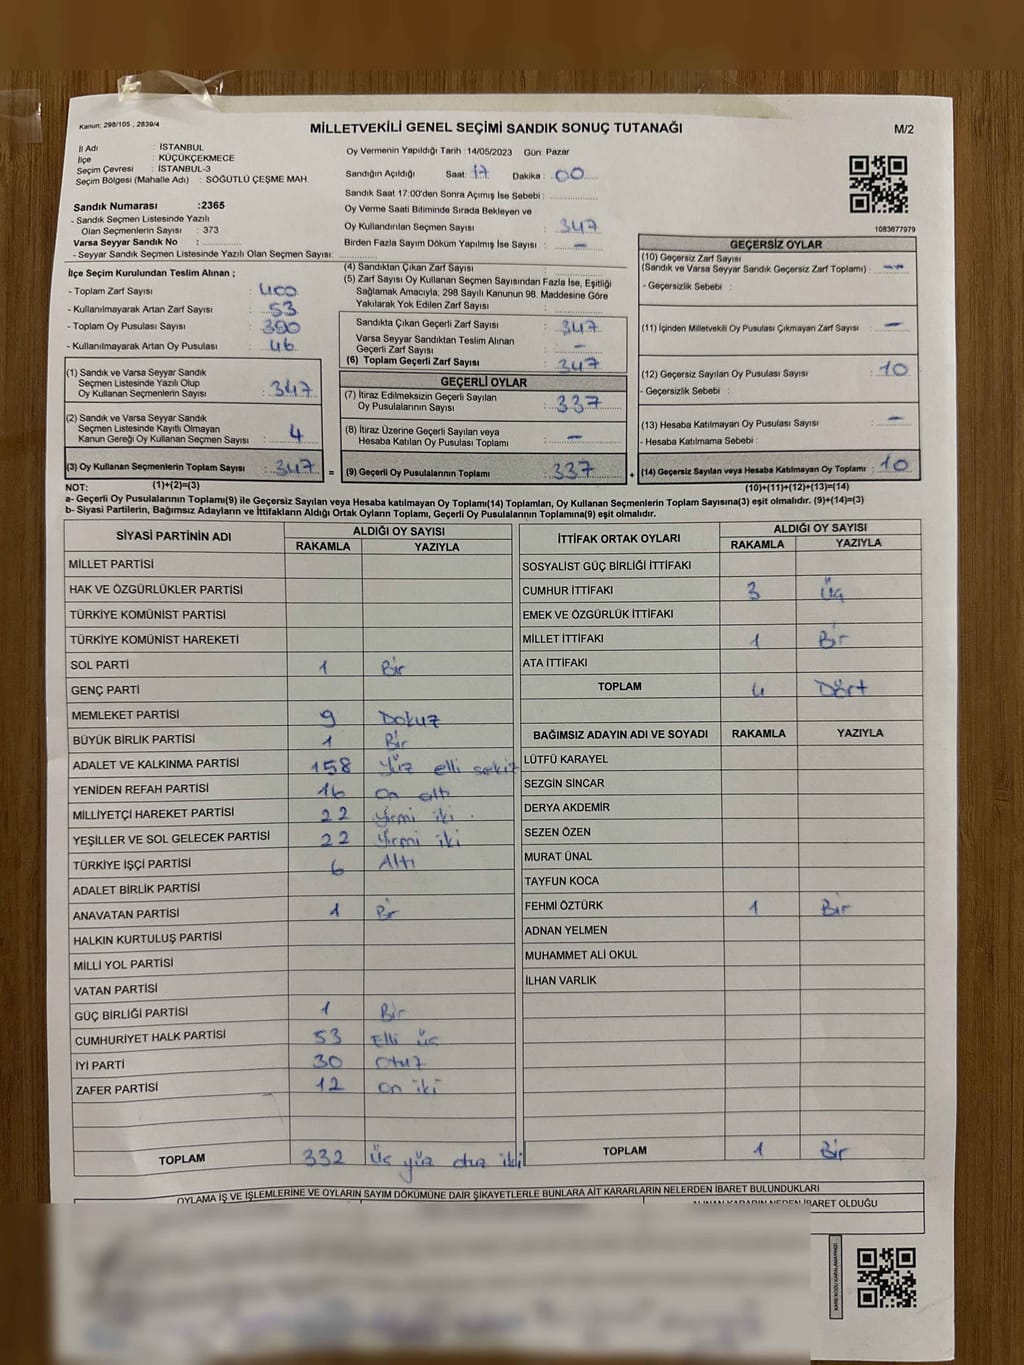 Kanun: 298/105 , 2839/4
MİLLETVEKİLİ GENEL SEÇİMİ SANDIK SONUÇ TUTANAĞI
M/2
İl Adı : İSTANBUL
İlçe : KÜÇÜKÇEKMECE
Seçim Çevresi : İSTANBUL-3
Seçim Bölgesi (Mahalle Adı) : SÖĞÜTLÜ ÇEŞME MAH.
Sandık Numarası :2365
- Sandık Seçmen Listesinde Yazılı
Olan Seçmenlerin Sayısı : 373
Varsa Seyyar Sandık No :
- Seyyar Sandık Seçmen Listesinde Yazılı Olan Seçmen Sayısı:
Oy Vermenin Yapıldığı Tarih :14/05/2023 Gün: Pazar
Sandığın Açıldığı Saat: 17 Dakika : 00
Sandık Saat 17:00'den Sonra Açımış İse Sebebi :
Oy Verme Saati Bitiminde Sırada Bekleyen ve
Oy Kullandırılan Seçmen Sayısı : 347
Birden Fazla Sayım Döküm Yapılmış İse Sayısı : -
1083677979
İlçe Seçim Kurulundan Teslim Alınan ;
- Toplam Zarf Sayısı : 400
- Kullanılmayarak Artan Zarf Sayısı : 53
- Toplam Oy Pusulası Sayısı : 390
- Kullanılmayarak Artan Oy Pusulası : 46
(1) Sandık ve Varsa Seyyar Sandık
Seçmen Listesinde Yazılı Olup
Oy Kullanan Seçmenlerin Sayısı : 347
(2) Sandık ve Varsa Seyyar Sandık
Seçmen Listesinde Kayıtlı Olmayan
Kanun Gereği Oy Kullanan Seçmen Sayısı : 4
(3) Oy Kullanan Seçmenlerin Toplam Sayısı : 347
(4) Sandıktan Çıkan Zarf Sayısı :
(5) Zarf Sayısı Oy Kullanan Seçmen Sayısından Fazla İse, Eşitliği
Sağlamak Amacıyla; 298 Sayılı Kanunun 98. Maddesine Göre
Yakılarak Yok Edilen Zarf Sayısı :
Sandıkta Çıkan Geçerli Zarf Sayısı : 347
Varsa Seyyar Sandıktan Teslim Alınan
Geçerli Zarf Sayısı : -
(6) Toplam Geçerli Zarf Sayısı : 347
GEÇERLİ OYLAR
(7) İtiraz Edilmeksizin Geçerli Sayılan
Oy Pusulalarının Sayısı : 337
(8) İtiraz Üzerine Geçerli Sayılan veya
Hesaba Katılan Oy Pusulası Toplamı : -
= (9) Geçerli Oy Pusulalarının Toplamı : 337
GEÇERSİZ OYLAR
(10) Geçersiz Zarf Sayısı
(Sandık ve Varsa Seyyar Sandık Geçersiz Zarf Toplamı) : -
- Geçersizlik Sebebi :
(11) İçinden Milletvekili Oy Pusulası Çıkmayan Zarf Sayısı : -
(12) Geçersiz Sayılan Oy Pusulası Sayısı : 10
- Geçersizlik Sebebi :
(13) Hesaba Katılmayan Oy Pusulası Sayısı : -
- Hesaba Katılmama Sebebi :
+ (14) Geçersiz Sayılan veya Hesaba Katılmayan Oy Toplamı : 10
NOT: (1)+(2)=(3)
(10)+(11)+(12)+(13)=(14)
a- Geçerli Oy Pusulalarının Toplamı(9) ile Geçersiz Sayılan veya Hesaba katılmayan Oy Toplamı(14) Toplamları, Oy Kullanan Seçmenlerin Toplam Sayısına(3) eşit olmalıdır. (9)+(14)=(3)
b- Siyasi Partilerin, Bağımsız Adayların ve İttifakların Aldığı Ortak Oyların Toplamı, Geçerli Oy Pusulalarının Toplamına(9) eşit olmalıdır.
SİYASİ PARTİNİN ADI ALDIĞI OY SAYISI
RAKAMLA YAZIYLA
MİLLET PARTİSİ
HAK VE ÖZGÜRLÜKLER PARTİSİ
TÜRKİYE KOMÜNİST PARTİSİ
TÜRKİYE KOMÜNİST HAREKETİ
SOL PARTİ 1 Bir
GENÇ PARTİ
MEMLEKET PARTİSİ 9 Dokuz
BÜYÜK BİRLİK PARTİSİ 1 Bir
ADALET VE KALKINMA PARTİSİ 158 Yüz elli sekiz
YENİDEN REFAH PARTİSİ 16 On altı
MİLLİYETÇİ HAREKET PARTİSİ 22 Yirmi iki
YEŞİLLER VE SOL GELECEK PARTİSİ 22 Yirmi iki
TÜRKİYE İŞÇİ PARTİSİ 6 Altı
ADALET BİRLİK PARTİSİ
ANAVATAN PARTİSİ 1 Bir
HALKIN KURTULUŞ PARTİSİ
MİLLİ YOL PARTİSİ
VATAN PARTİSİ
GÜÇ BİRLİĞİ PARTİSİ 1 Bir
CUMHURİYET HALK PARTİSİ 53 Elli üç
İYİ PARTİ 30 Otuz
ZAFER PARTİSİ 12 On iki
TOPLAM 332 Üç yüz otuz iki
İTTİFAK ORTAK OYLARI ALDIĞI OY SAYISI
RAKAMLA YAZIYLA
SOSYALİST GÜÇ BİRLİĞİ İTTİFAKI
CUMHUR İTTİFAKI 3 Üç
EMEK VE ÖZGÜRLÜK İTTİFAKI
MİLLET İTTİFAKI 1 Bir
ATA İTTİFAKI
TOPLAM 4 Dört
BAĞIMSIZ ADAYIN ADI VE SOYADI RAKAMLA YAZIYLA
LÜTFÜ KARAYEL
SEZGİN SİNCAR
DERYA AKDEMİR
SEZEN ÖZEN
MURAT ÜNAL
TAYFUN KOCA
FEHMİ ÖZTÜRK 1 Bir
ADNAN YELMEN
MUHAMMET ALİ OKUL
İLHAN VARLIK
TOPLAM 1 Bir
OYLAMA İŞ VE İŞLEMLERİNE VE OYLARIN SAYIM DÖKÜMÜNE DAİR ŞİKAYETLERLE BUNLARA AİT KARARLARIN NELERDEN İBARET BULUNDUKLARI
ALINAN KARARIN NEDEN İBARET OLDUĞU